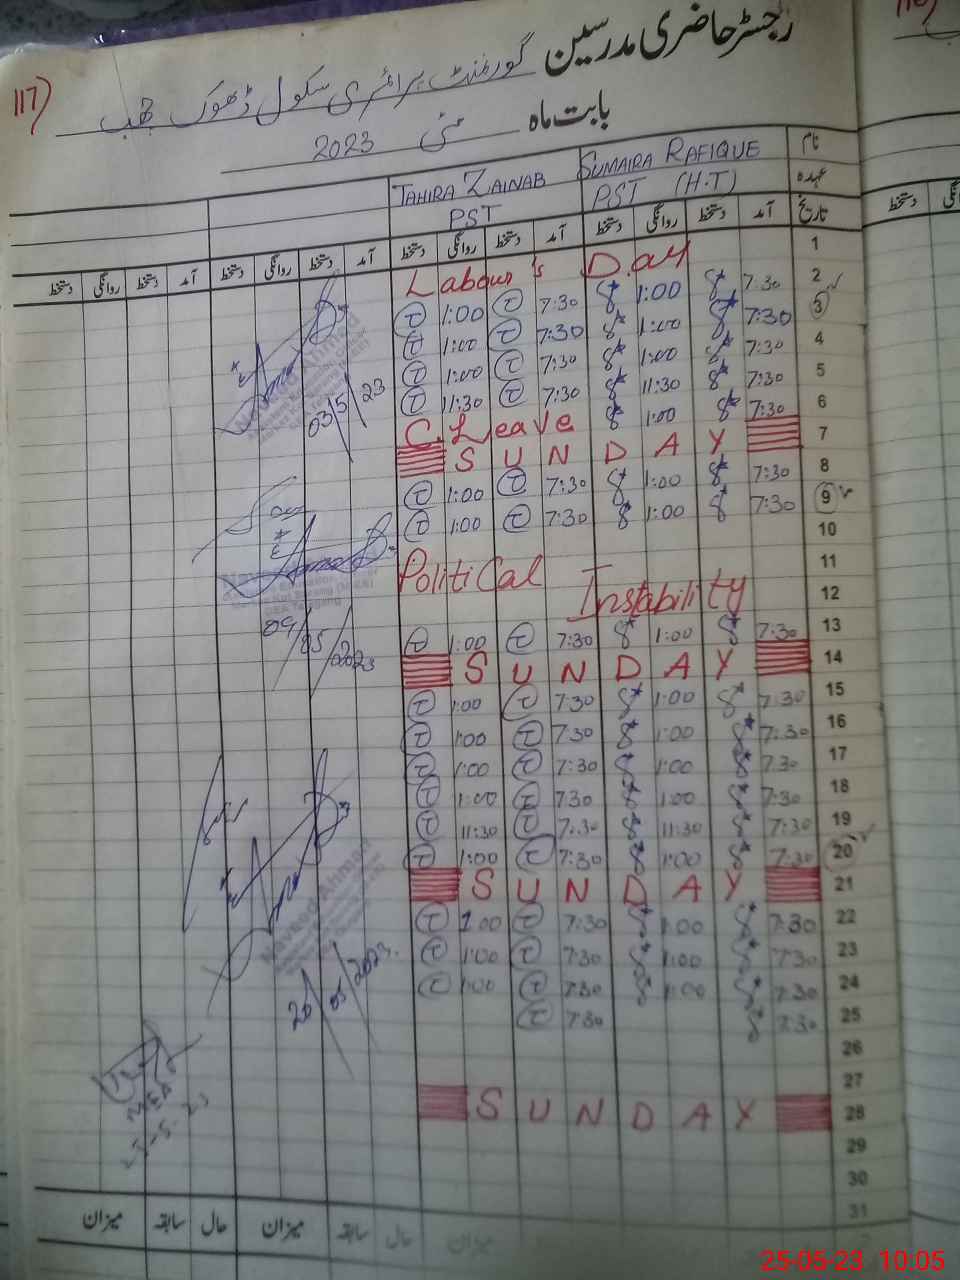 117)
رجسٹر حاضری مدرسین گورنمنٹ پرائمری سکول ڈھوک
بابت ماہ مئی 2023
نام SUMAIRA RAFIQUE TAHIRA ZAINAB
عہدہ PST (H.T) PST
تاریخ آمد دستخط روانگی دستخط آمد دستخط روانگی دستخط آمد دستخط روانگی دستخط آمد دستخط روانگی دستخط
Labour's Day 1
T 1:00 T 7:30 1:00 7:30 2
T 1:00 T 7:30 1:00 7:30 3
T 1:00 T 7:30 1:00 7:30 4
T 11:30 T 7:30 11:30 7:30 5
C.Leave 1:00 7:30 6
SUNDAY 7
T 1:00 T 7:30 1:00 7:30 8
T 1:00 T 7:30 1:00 7:30 9
10
Political 11
Instability 12
T 1:00 T 7:30 1:00 7:30 13
SUNDAY 14
T 1:00 T 7:30 1:00 7:30 15
T 1:00 T 7:30 1:00 7:30 16
T 1:00 T 7:30 1:00 7:30 17
T 1:00 T 7:30 1:00 7:30 18
T 11:30 T 7:30 11:30 7:30 19
T 1:00 T 7:30 1:00 7:30 20
SUNDAY 21
T 1:00 T 7:30 1:00 7:30 22
T 1:00 T 7:30 1:00 7:30 23
T 1:00 T 7:30 1:00 7:30 24
T 7:30 7:30 25
26
27
SUNDAY 28
29
30
31
03/5/23
09/05/2023
Naveed Ahmed
20/05/2023
MEA
میزان سابقہ حال میزان سابقہ حال میزان
25-05-23 10:05